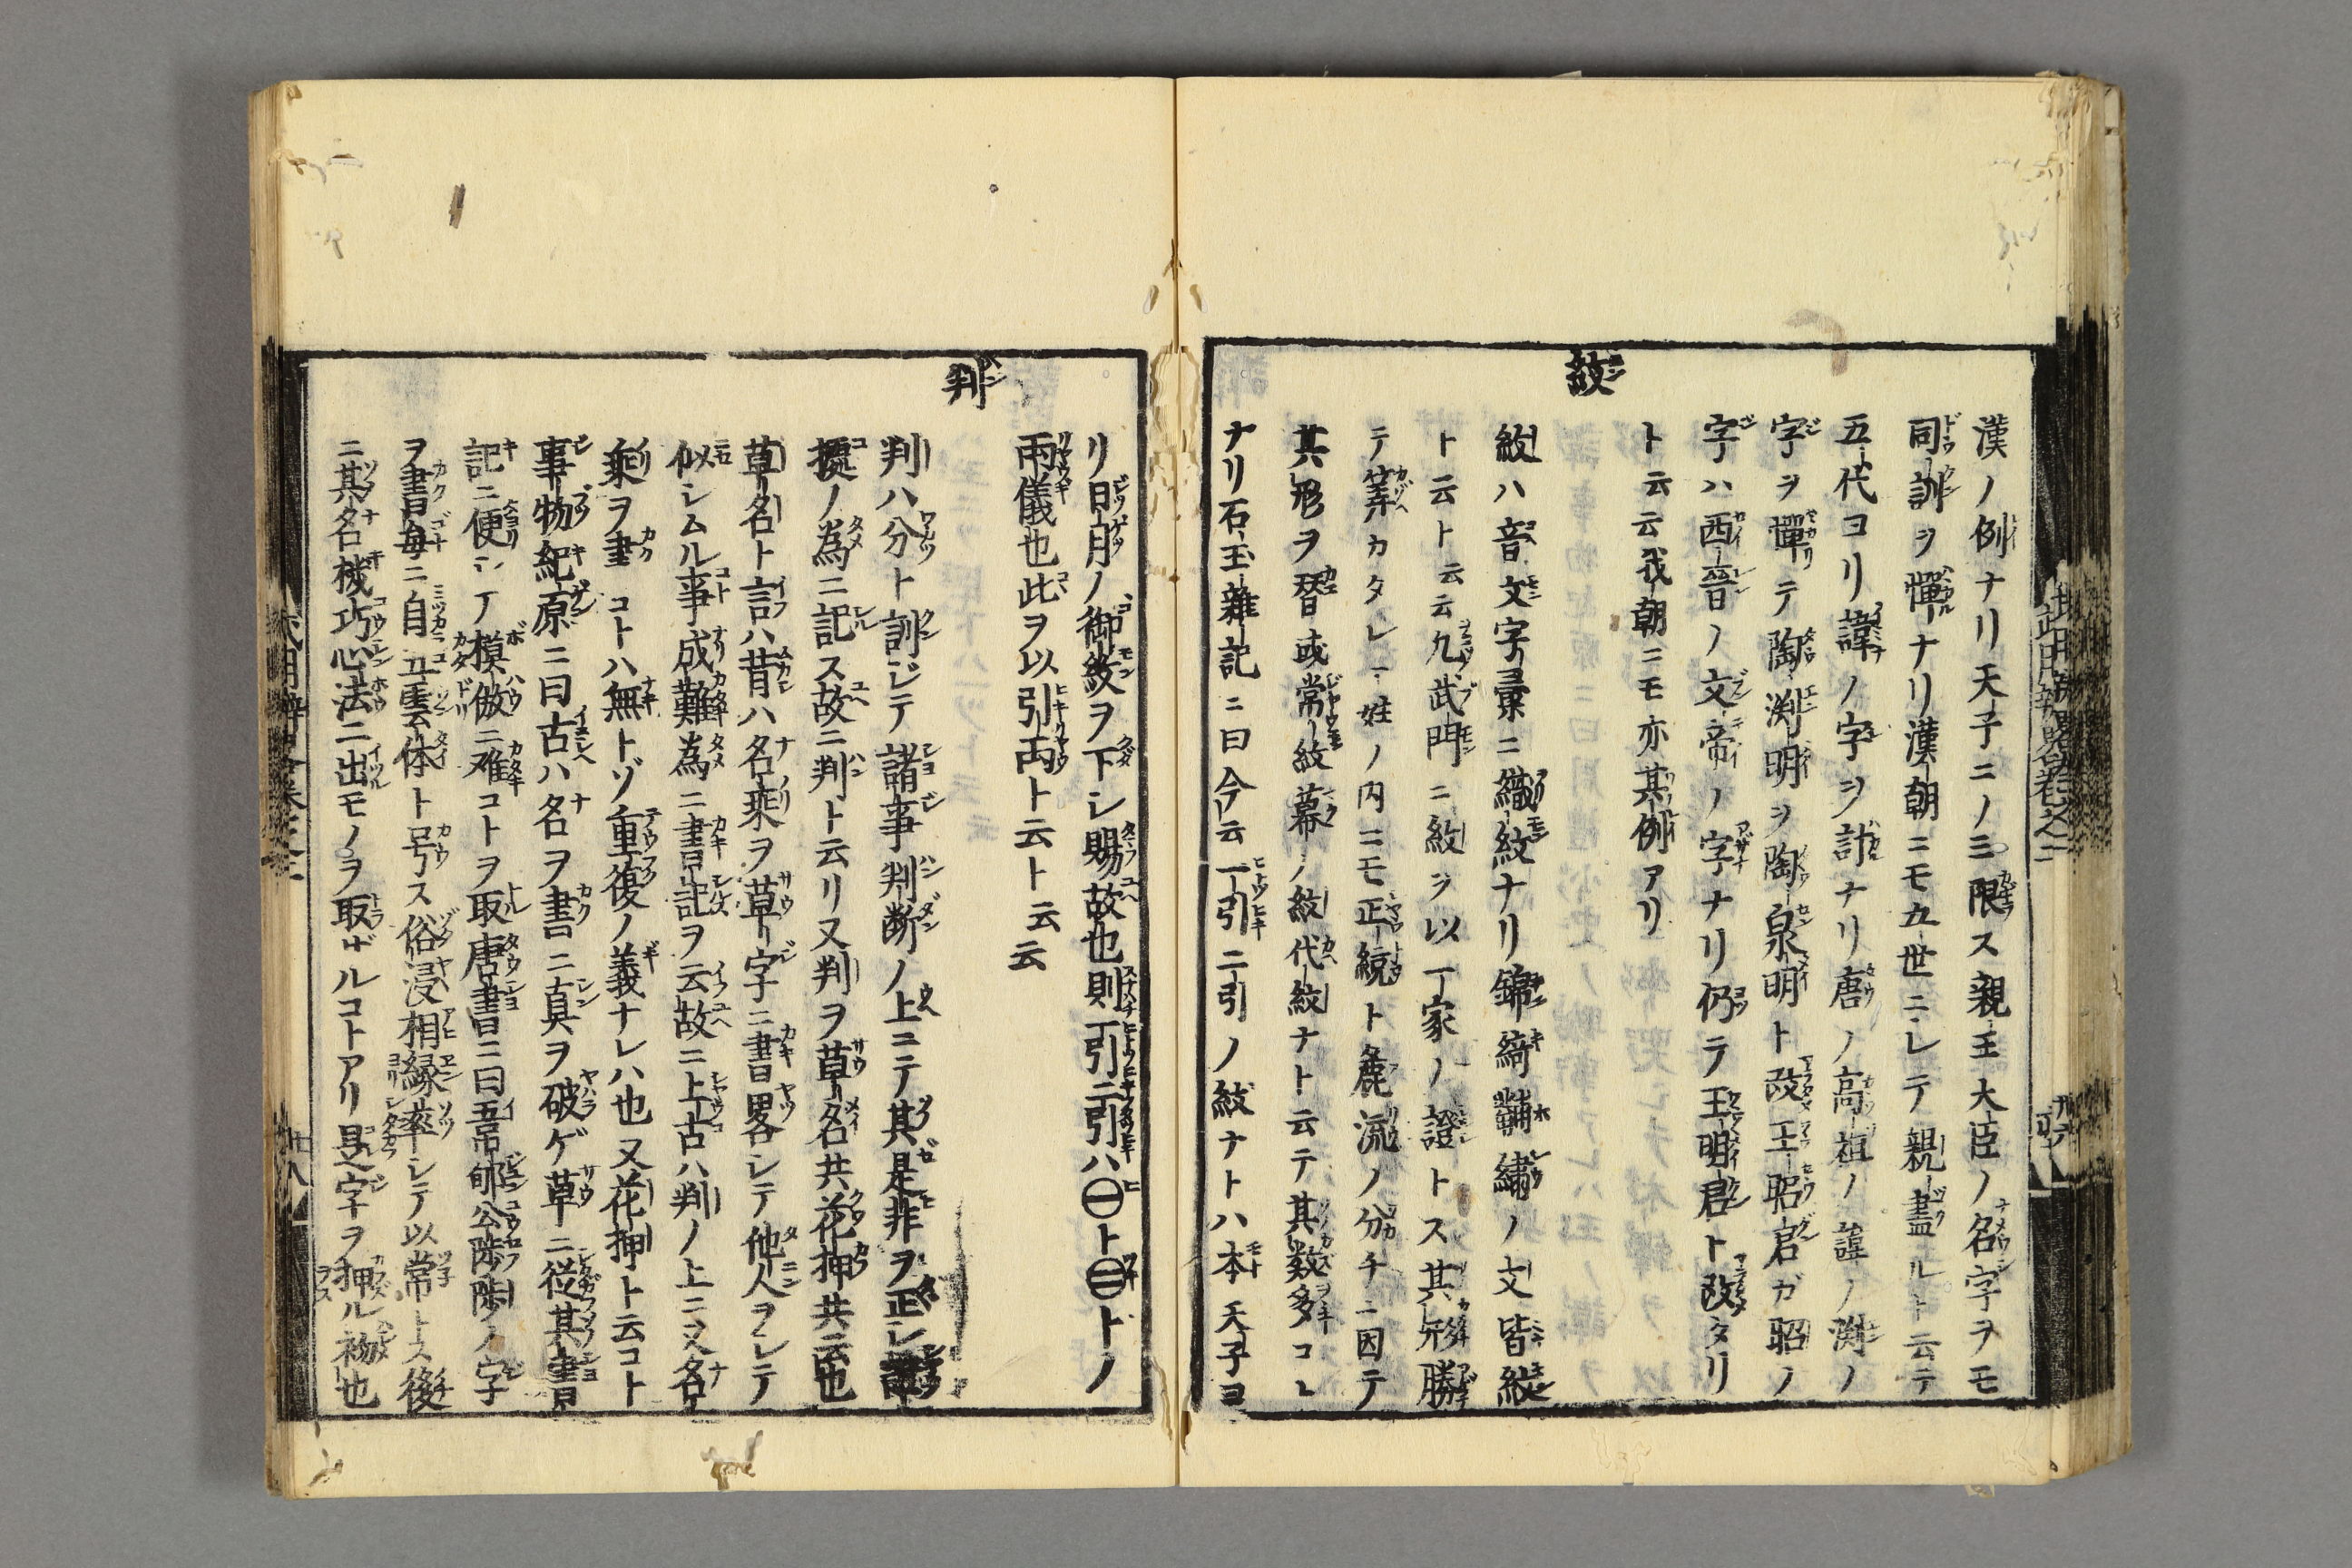 漢ノ例ナリ天子ニノミ限ス親王大臣ノ名字ヲモ
同訓ヲ憚ナリ漢朝ニモ五世ニシテ親盡ルト云テ
五代ヨリ諱ノ字ヲ計ナリ唐ノ高祖ノ諱ノ渕ノ
字ヲ憚テ陶渕明ヲ陶泉明ト改王昭君ガ昭ノ
字ハ西晉ノ文帝ノ字ナリ仍ラ王明君ト改タリ
ト云云我朝ニモ亦其例アリ
紋
紋ハ音文字彙ニ織紋ナリ錦綺黼繡ノ文皆縱
ト云ト云云九武門ニ紋ヲ以丁家ノ證トス其形勝
テ筭カタレ一姓ノ内ニモ正統ト麁流ノ分チニ因テ
其形ヲ替或常紋幕ノ紋代紋ナト云テ其数多コレ
ナリ石玉雜記ニ曰今云一引二引ノ紋ナトハ本天子ヨ
リ日月ノ御紋ヲ下シ賜故也則一引二引ハ㊀ト㊁トノ
兩儀也此ヲ以引両ト云ト云云
判
判ハ分ト訓ジテ諸事判断ノ上ニテ其是非ヲ正シ
擾ノ為ニ記ス故ニ判ト云リ又判ヲ草名共花押共云也
草名ト言ハ昔ハ名乘ヲ草字ニ書畧シテ他人ヲシテ
似シムル事成難為ニ書記ヲ云故ニ上古ハ判ノ上ニ又名
乘ヲ書コトハ無トゾ重復ノ義ナレハ也又花押ト云コト
事物紀原ニ曰古ハ名ヲ書ニ真ヲ破ゲ草ニ從其書
記ニ便シテ模倣ニ难コトヲ取唐書ニ曰韋郇公陟陟ノ字
ヲ書毎ニ自五雲体ト号ス俗浸相縁率シテ以常トス後
ニ其名機巧心法ニ出モノヲ取ザルコトアリ是字ヲ押ル初也